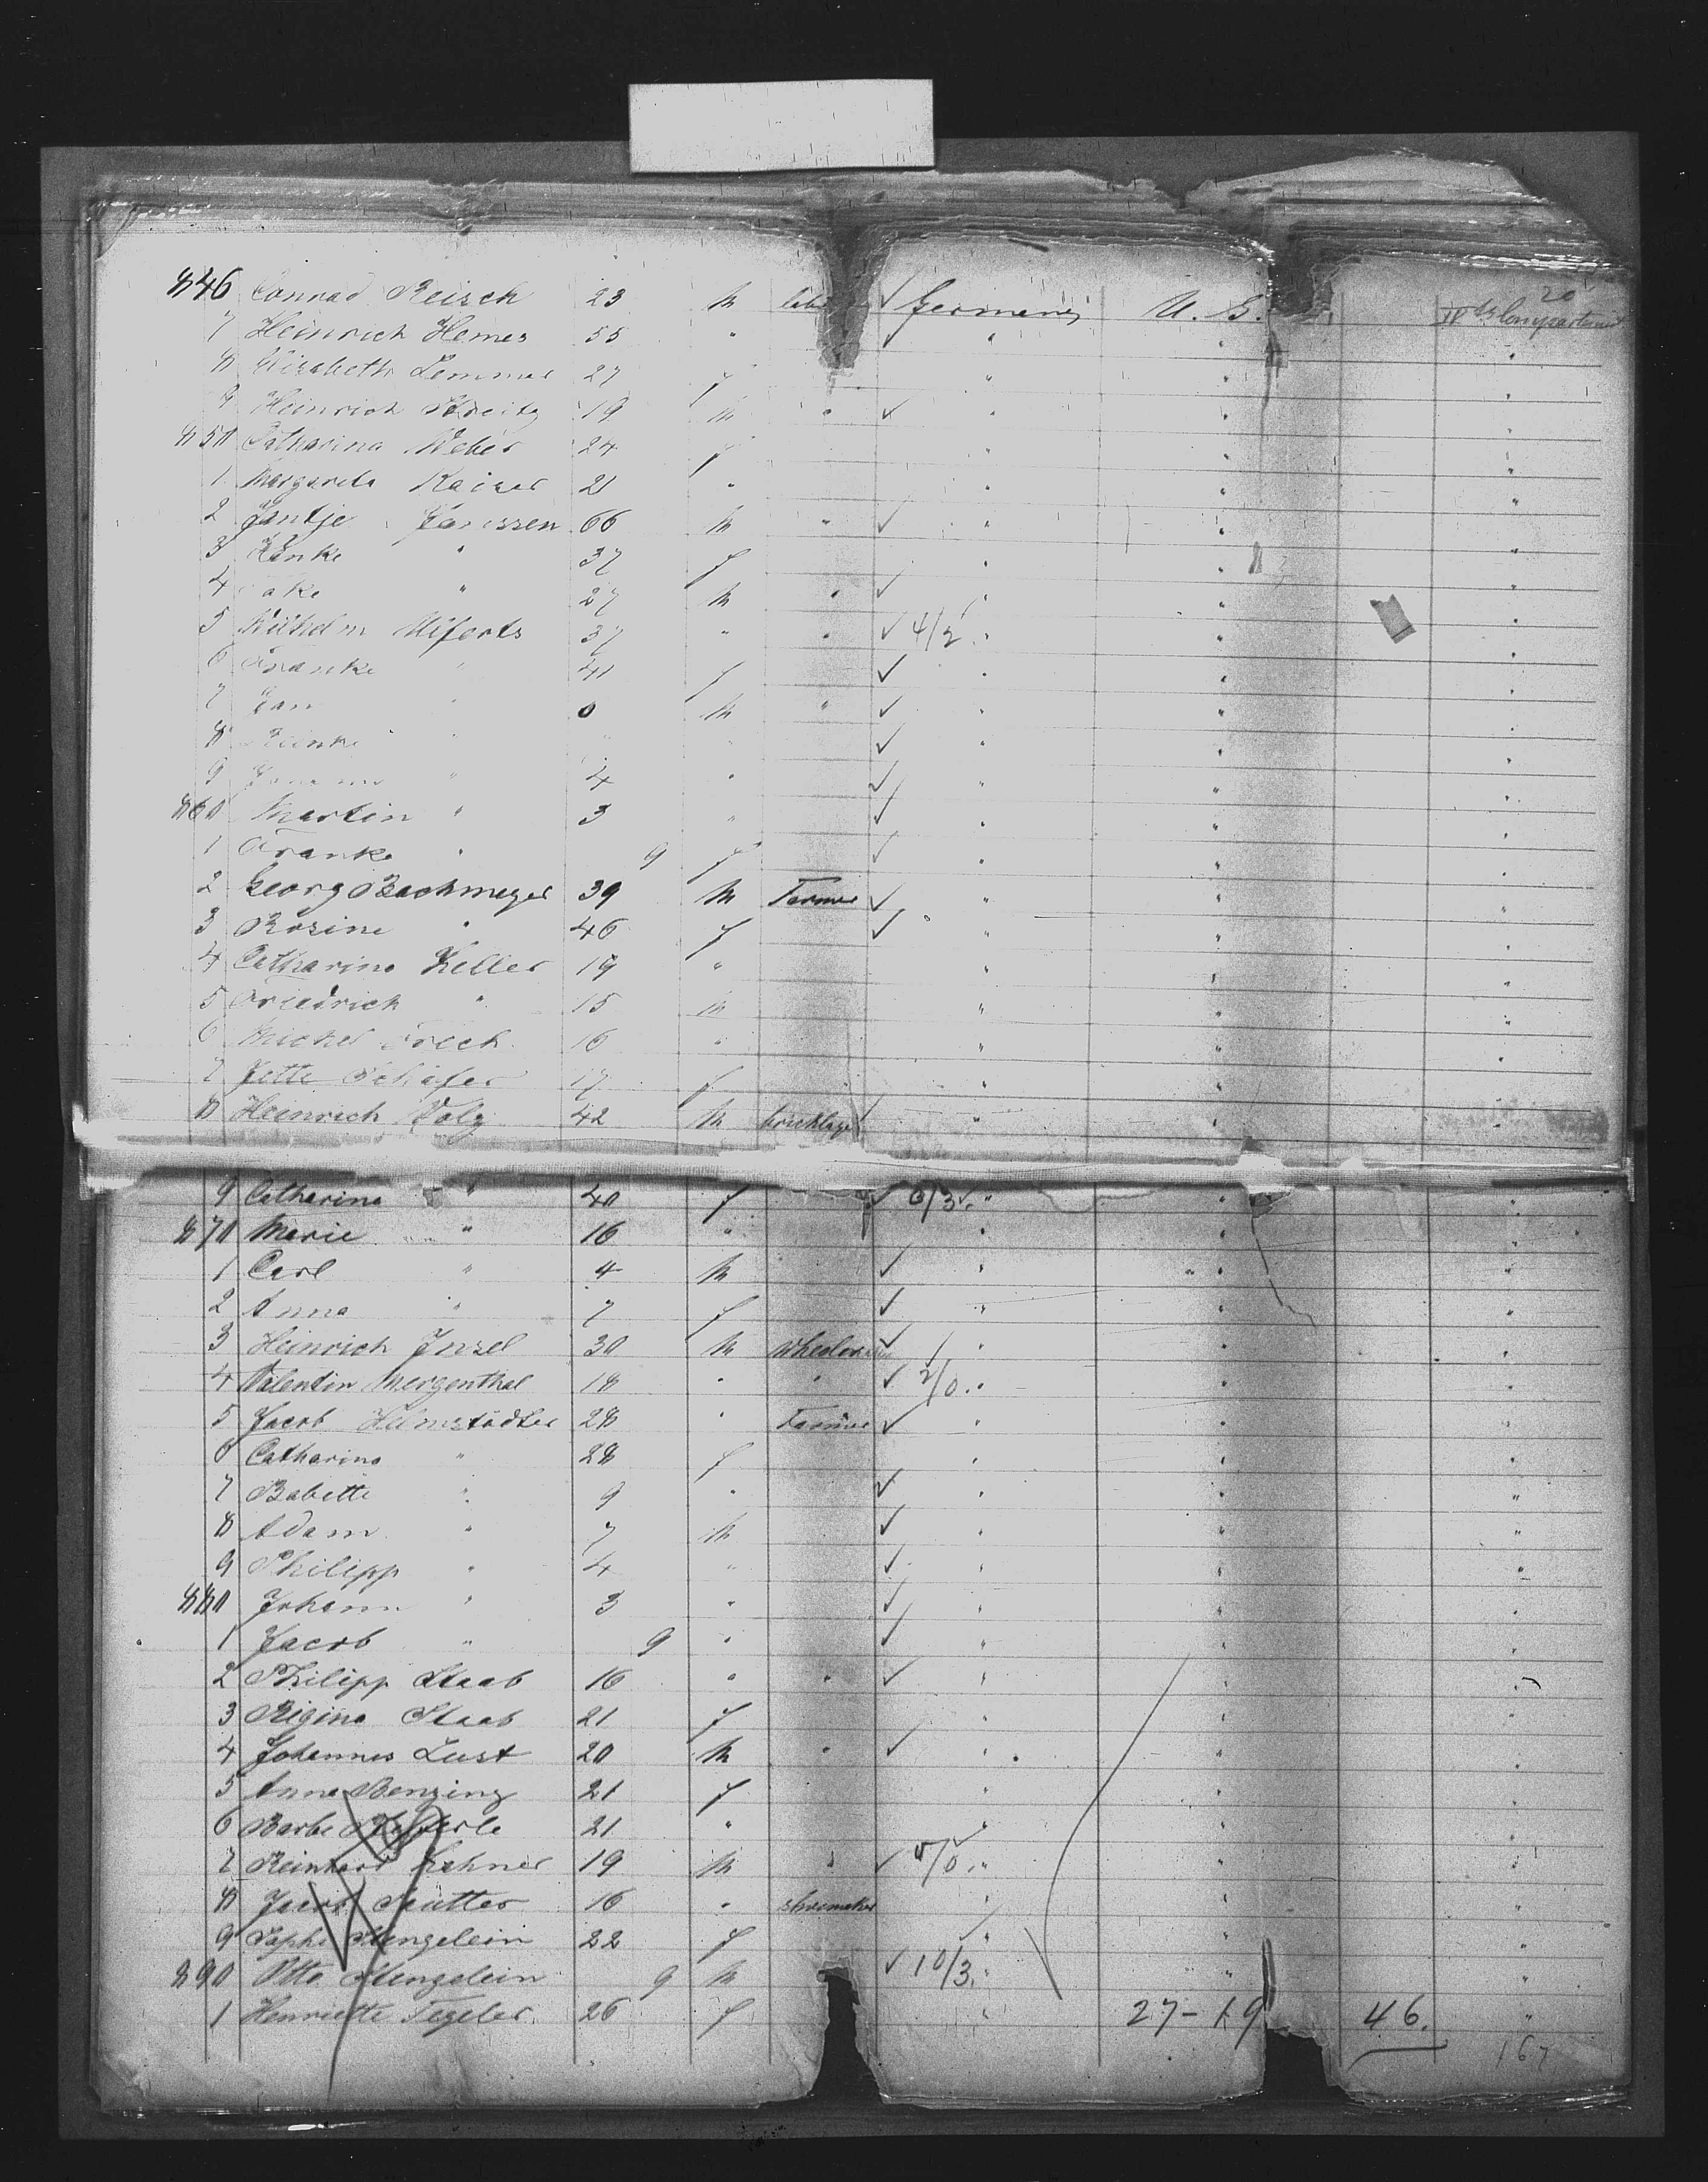 20
846 Conrad Reisch 23 m ✓ Germany U. S.
7 Heinrich Hemes 55 " ✓ " " "
8 Elisabeth Lemmer 27 f " " "
9 Heinrich 19 m " ✓ " " "
850 Catharina Weber 24 f " " "
1 Margareta Kaiser 21 " " " "
2 Jantje Janssen 66 m " ✓ " " "
3 " 37 f " " "
4 " 27 m " ✓ " " "
5 Wilhelm Uferts 37 " " ✓ 4/2 " " "
6 Franke " 41 f ✓ " " "
7 Jan " 0 m " ✓ " " "
8 " " " ✓ " " "
9 " 4 " ✓ " " "
860 Martin " 3 " ✓ " " "
1 Franke " 9 f ✓ " " "
2 Georg Bachmeyer 39 m Farmer ✓ " " "
3 Rosine " 46 f ✓ " " "
4 Catharina Keller 19 " " " "
5 Friedrich " 15 m " " "
6 Michel 16 " " " "
7 Jette Schäfer 17 f " " "
8 Heinrich Volz 42 m bricklayer " " "
9 Catharina " 40 f ✓ 6/3. " " "
870 Marie " 16 " " " "
1 Carl " 4 m ✓ " " "
2 Anna " 7 f ✓ " " "
3 Heinrich Insel 30 m ✓ " " "
4 Valentin Mergenthal 18 " " ✓ 2/0. " " "
5 Jacob Helmstädter 28 " Farmer ✓ " " "
6 Catharina " 28 f " " "
7 Babette " 9 " ✓ " " "
8 Adam " 7 m ✓ " " "
9 Philipp " 4 " ✓ " " "
880 Johann " 3 " ✓ " " "
1 Jacob " 9 " ✓ " " "
2 Philipp Staab 16 " " ✓ " " "
3 Regina Staab 21 f " " "
4 Johannes Lust 20 m " ✓ " " "
5 Anna Benzing 21 f " " "
6 Barbe 21 " " " "
7 Reinhard Lehner 19 m " ✓ " " "
8 Jacob Sautter 16 " shoemaker " " "
9 Sophie Stengelein 22 f " " "
890 Otto Stengelein 9 m ✓ 10/3. " " "
1 Henriette Tegeler 26 f " 27-19 46. "
167